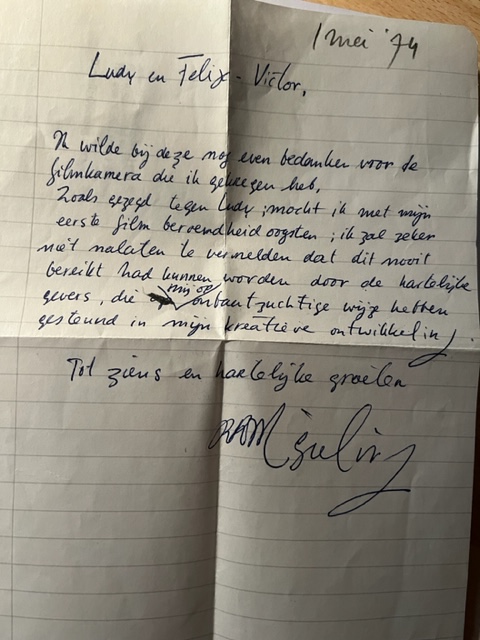 1 mei '74
Ludy en Felix-Victor,
Ik wilde bij deze nog even bedanken voor de
filmkamera die ik gekregen heb,
Zoals gezegd tegen Ludy; mocht ik met mijn
eerste film beroemdheid oogsten; ik zal zeker
niet nalaten te vermelden dat dit nooit
bereikt had kunnen worden door de hartelijke
gevers, die mij op onbaatzuchtige wijze hebben
gesteund in mijn kreatieve ontwikkeling.
Tot ziens en hartelijke groeten